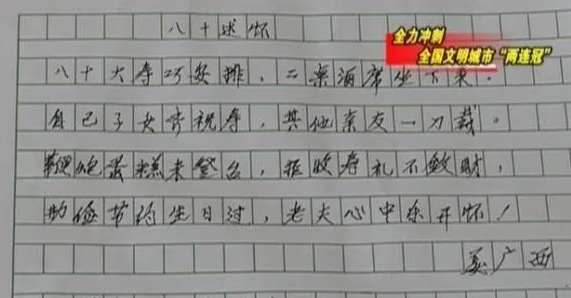 全力冲刺
全国文明城市“两连冠”
八十述怀
八十大寿巧安排，二桌酒席坐下来。
自己子女齐祝寿，其他亲友一刀裁。
鞭炮蛋糕未登台，拒收寿礼不敛财，
勤俭节约生日过，老夫心中乐开怀！
吴广西